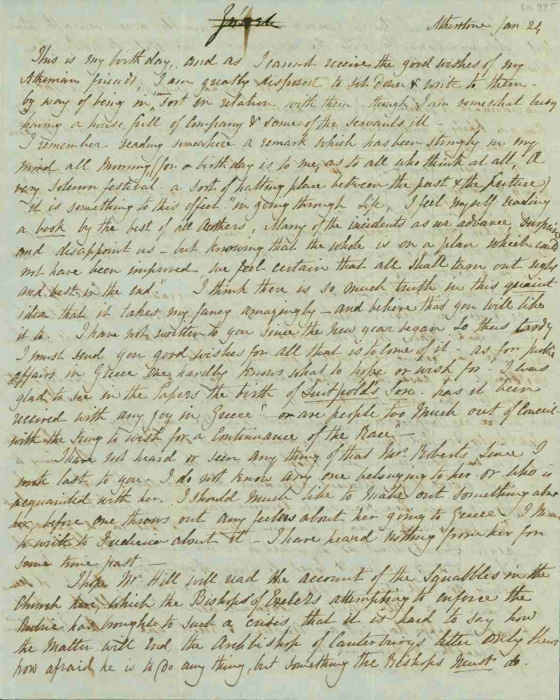 Atherstone Jan 24
This is my birthday, and as I cannot receive the good wishes of my
Athenian friends, I am greatly disposed to sit down & write to them
by way of being in sort in relation with them though I am somewhat busy
having a house full of Company & some of the servants ill -
I remember reading somewhere a remark which has been strongly in my
mind all Morning, (for a birthday is to me, as to all who think at all, "A
very solemn festival a sort of halting place between the past & the future)
it is something to this effect "in going through Life, I feel myself reading
a book by the best of all Authors, Many of the incidents as we advance, surprise
and disappoint us - but knowing that the whole is on a plan which could
not have been improved, we feel certain that all shall turn out right
and best in the end." I think there is so much truth in this quaint
idea that it takes my fancy amazingly - and believe that you will like
it to. I have not written to you since the New year began so thus tardy
I must send you good wishes for all that is to come of it - as for public
affairs in Greece One hardly knows what to hope or wish for. I was
glad to see in the Papers the birth of Luitpold's Son. has it been
received with any joy in Greece? - or are people too Much out of Conceit
with the King to wish for a Continuance of the Race? -
I have not heard or seen any thing of that Mrs Roberts since I
wrote last to you. I do not know any one belonging to her or who is
acquainted with her. I should Much like to Make out something about
her, before one throws out any feelers about her going to Greece I
to write to about it - I have heard nothing from her for
some time past -
I hope Mr Hill will read the account of the Squabbles in the
Church here, which the Bishop of Exeter's attempting to enforce the
Rubric has brought to such a crisis, that it is hard to say how
the Matter will end, the Archbishop of Canterbury's letter only shews
how afraid he is to do any thing, but something the Bishops Must do.